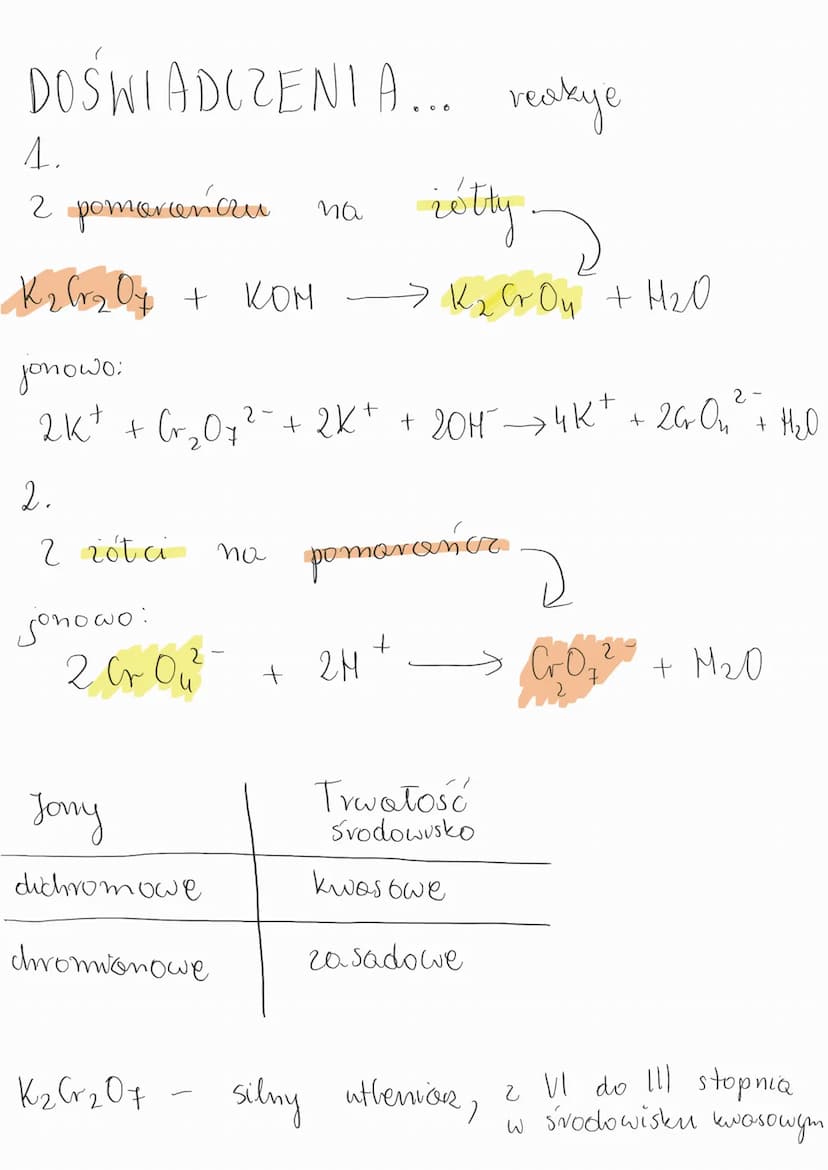 DOŚWIADCZENIA... reakcje
1.
z pomarańczu na żółty
K₂Cr₂O₇ + KOH → K₂CrO₄ + H₂O
jonowo:
2K⁺ + Cr₂O₇²⁻ + 2K⁺ + 2OH⁻ → 4K⁺ + 2CrO₄²⁻ + H₂O
2.
z żółci na pomarańcz
jonowo:
2CrO₄²⁻ + 2H⁺ → Cr₂O₇²⁻ + H₂O
Jony Trwałość
środowisko
dichromowe kwasowe
chromianowe zasadowe
K₂Cr₂O₇ – silny utleniacz, z VI do III stopnia
w środowisku kwasowym